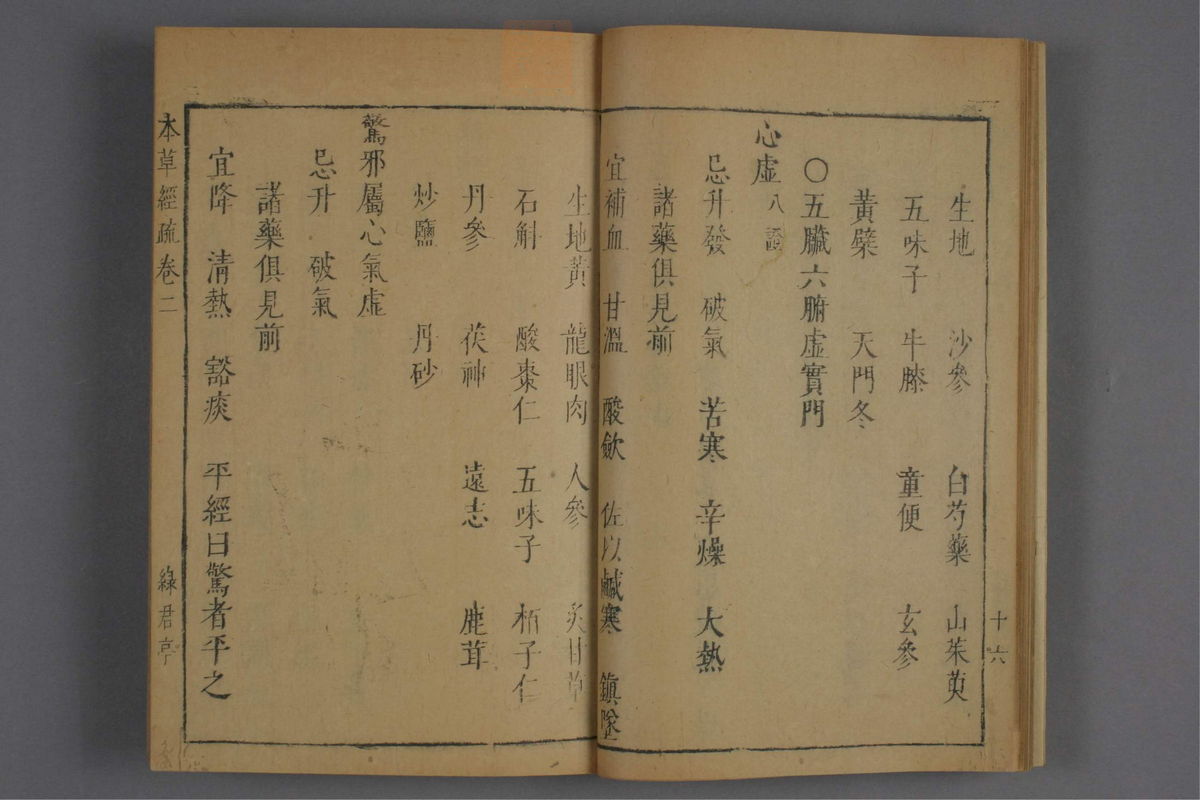 十六
生地 沙參 白芍藥 山茱萸
五味子 牛膝 童便 玄參
黃檗 天門冬
〇五臟六腑虛實門
心虛八證
忌升發 破氣 苦寒 辛燥 大熱
諸藥俱見前
宜補血 甘溫 酸斂 佐以鹹寒 鎮墜
生地黃 龍眼肉 人參 炙甘草
石斛 酸棗仁 五味子 栢子仁
丹參 茯神 遠志 鹿茸
炒鹽 丹砂
驚邪屬心氣虛
忌升 破氣
諸藥俱見前
宜降 清熱 豁痰 平經曰驚者平之
本草經疏卷二 綠君亭